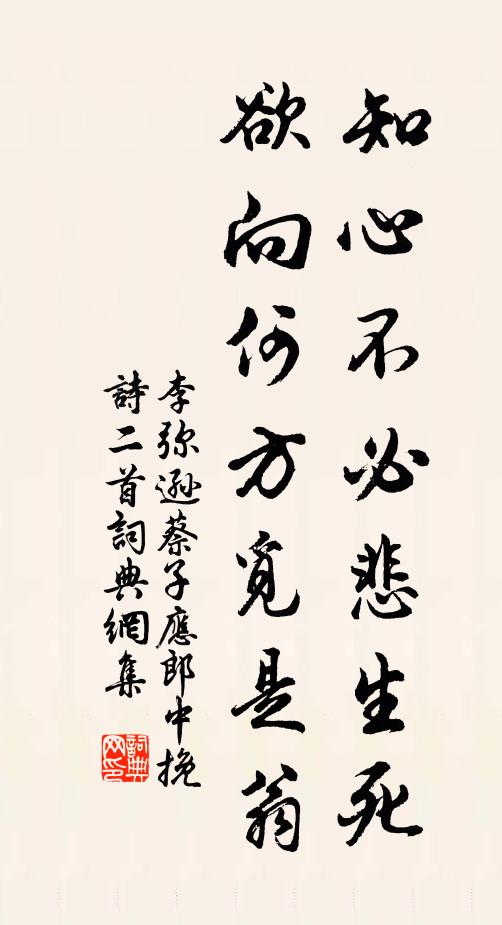 知心不必悲生死
欲向何方覓是翁
李弥遜蔡子應郎中挽
詩二首詞典網集
詞典
网印